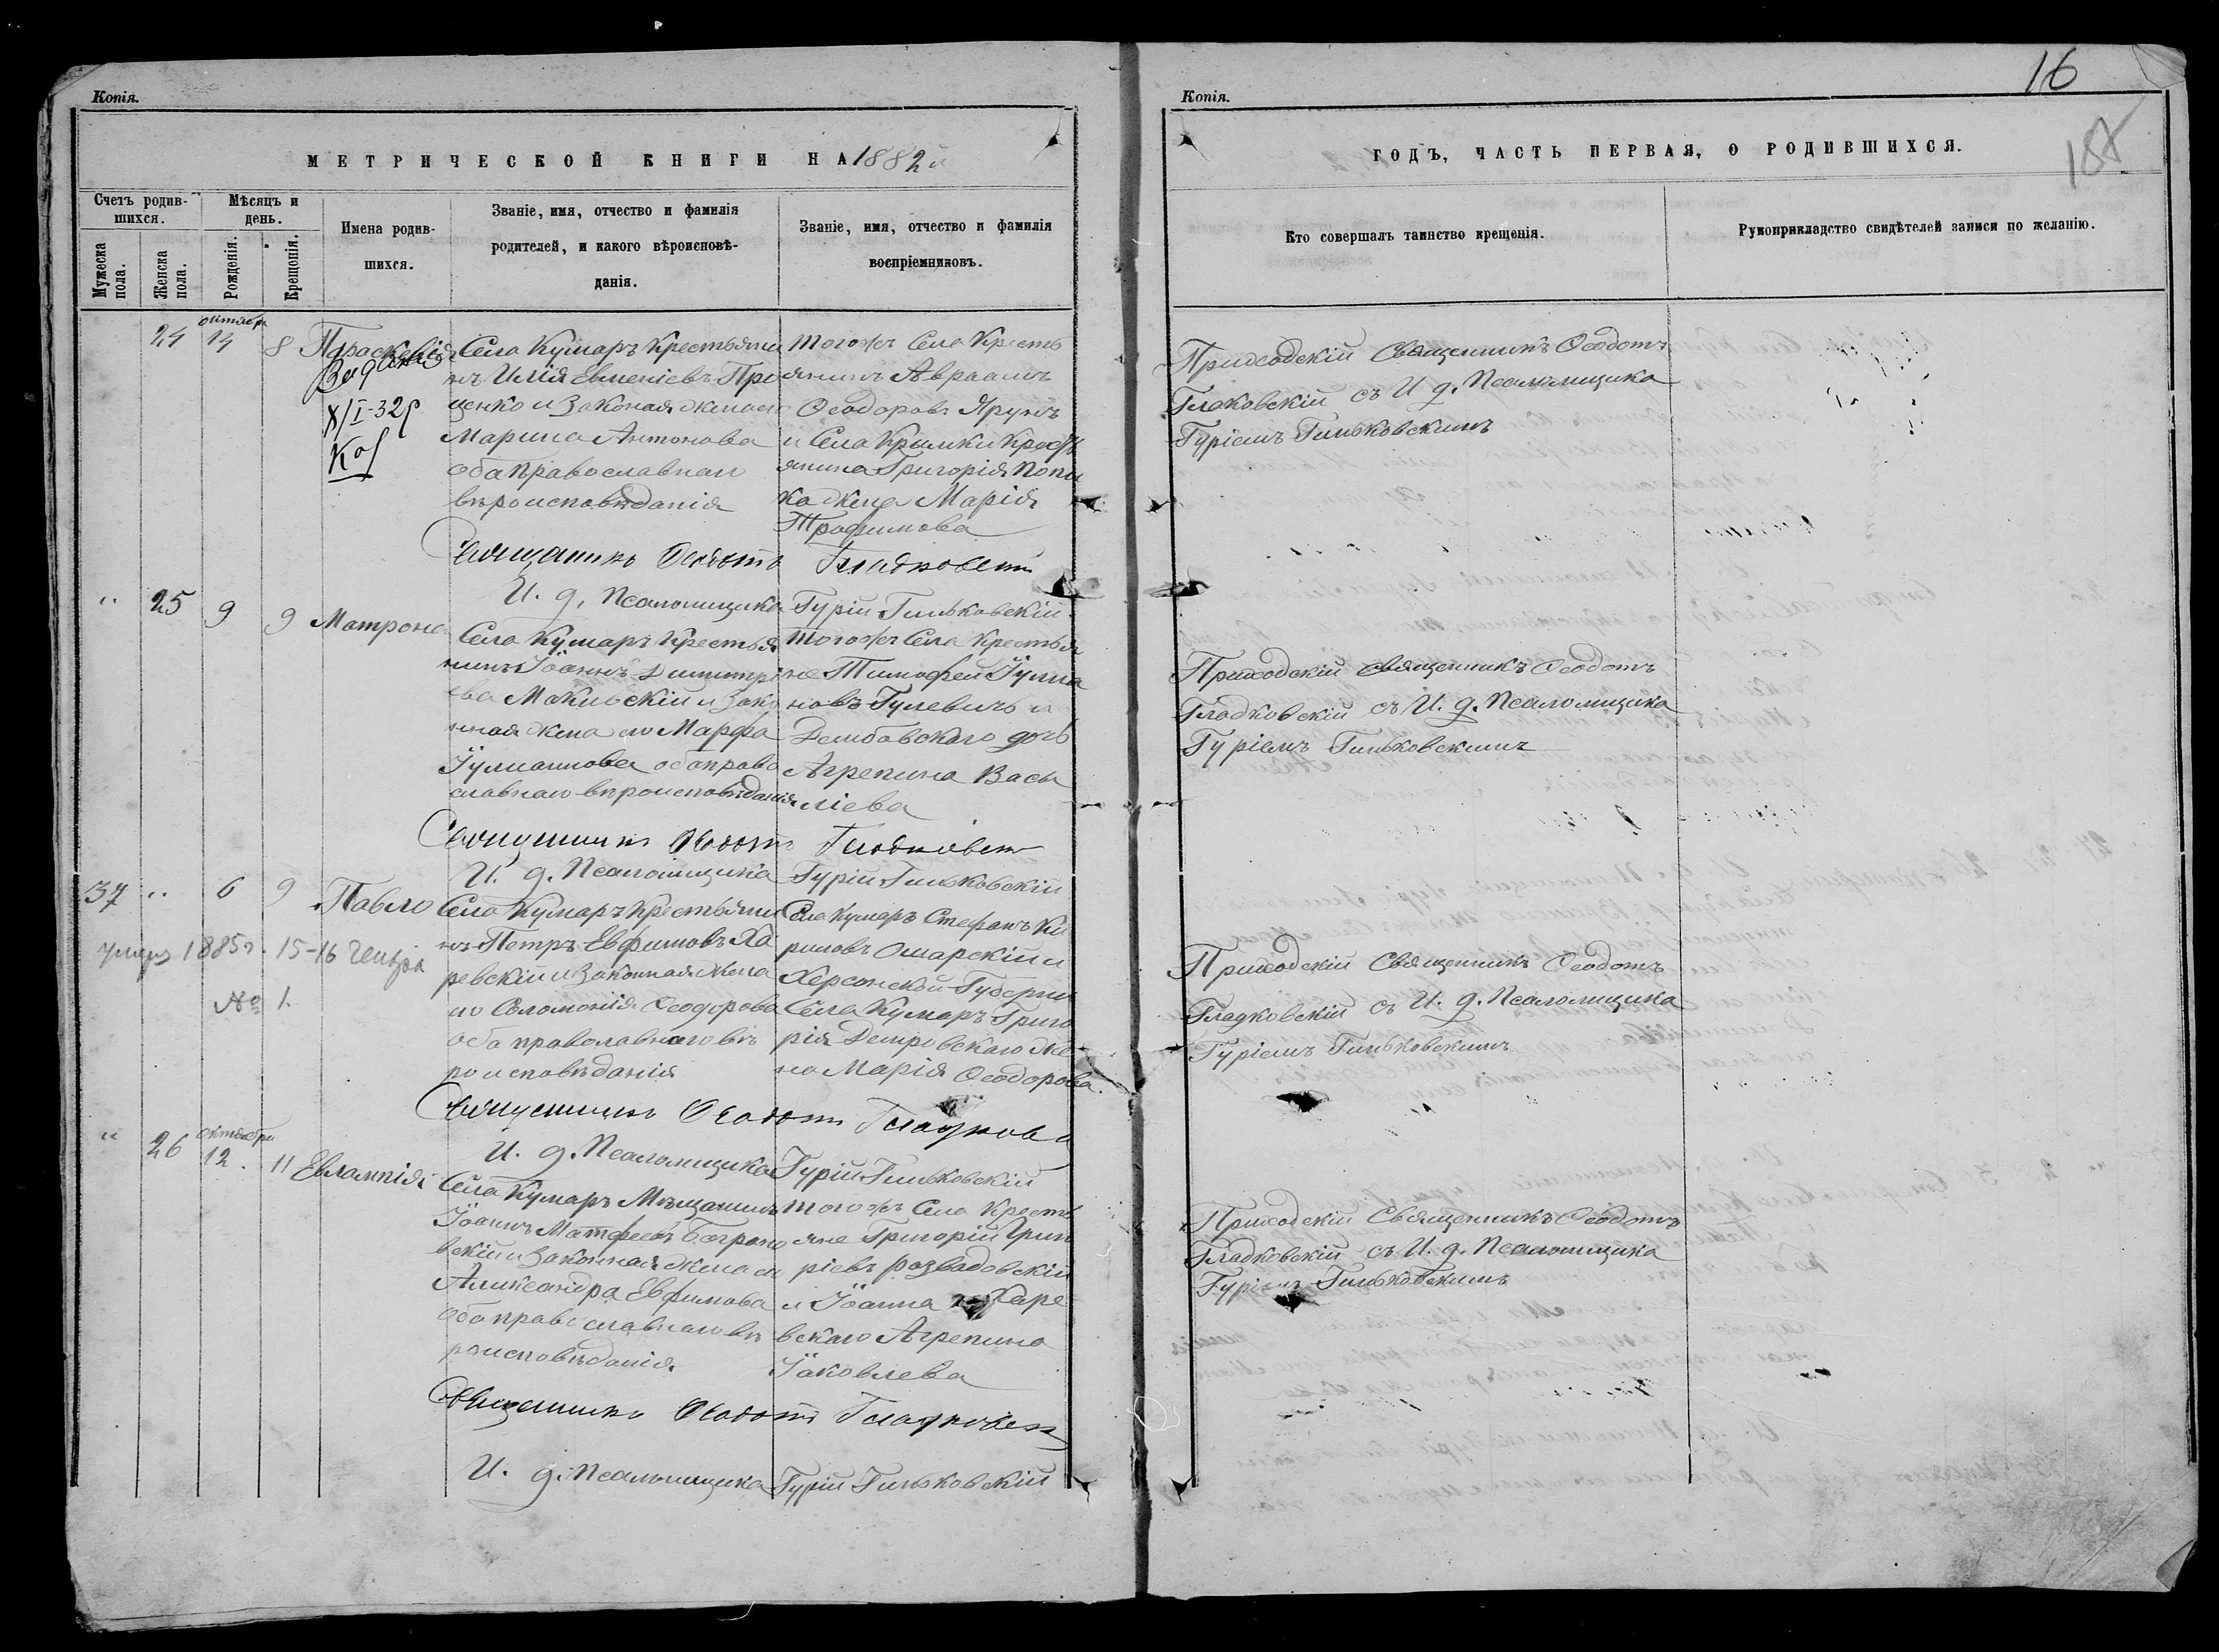 Копія.
МЕТРИЧЕСКОЙ КНИГИ НА 1882й
Счетъ родив-
шихся.
Мужеска
пола.
Женска
пола.
Мѣсяцъ и
день.
Рожденія.
Крещенія.
Имена родив-
шихся.
Званіе, имя, отчество и фамилія
родителей, и какого вѣроисповѣ-
данія.
Званіе, имя, отчество и фамилія
воспріемниковъ.
24
октября
14
8
Параскевія
X/I-32
Села Кумаръ Крестьяни
нъ Илія Евменіевъ Про
ценко и Законая жена его
Марина Антонова
оба Православнаго
вѣроисповѣданія
Тогожъ Села Кресть
янинъ Авраамъ
Ѳеодоровъ Ярунъ
и Села Крымки Крест
янина Григорія Попи
ка жена Марія
Трофимова
Священникъ Ѳеодотъ Гладковскій
И. д. Псаломщика Гурій Гиньковскій
"
25
9
9
Матрона
Села Кумаръ Крестья
нинъ Іоаннъ Димитрі
евъ Макиевскій и Зако
нная жена его Марфа
Іулианнова оба право
славнаго вѣроисповѣданія
Тогожъ Села Крестья
не Тимофей Іулиа
новъ Гулевичъ и
Дембовскаго дочь
Агрепина Васи
ліева
Священникъ Ѳеодотъ Гладковскій
И. д. Псаломщика Гурій Гиньковскій
37
"
6
9
Павло
умеръ 1885 г. 15-16 Генвря
№ 1.
Села Кумаръ Крестьяни
нъ Петръ Евфимовъ Ха
ревскій и Законная жена
его Соломонія Ѳеодорова
оба православнаго вѣ
роисповѣданія
Села Кумаръ Стефанъ Ки
риловъ Омарскій и
Херсонской Губерни
Села Кумаръ Григо
рія Демровскаго же
на Марія Ѳеодорова
Священникъ Ѳеодотъ Гладковс
И. д. Псаломщика Гурій Гиньковскій
"
26
октября
12.
11
Евлампія
Села Кумаръ Мѣщанинъ
Іоаннъ Матфеевъ Баграно
вскій и Законная жена его
Александра Евфимова
Оба православнаго вѣ
роисповѣданія
Тогожъ Села Кресть
яне Григорій Григ
ріевъ Развадовскій
и Іоанна Харе
вскаго Агрепина
Іаковлева
Священникъ Ѳеодотъ Гладковск
И. д. Псаломщика Гурій Гиньковскій
Копія.
16
188
ГОДЪ, ЧАСТЬ ПЕРВАЯ, О РОДИВШИХСЯ.
Кто совершалъ таинство крещенія.
Рукоприкладство свидѣтелей записи по желанію.
Приходскій Священникъ Ѳеодотъ
Глаковскій съ И д. Псаломщика
Гуріемъ Гиньковскимъ
Приходскій Священникъ Ѳеодотъ
Гладковскій съ И. д. Псаломщика
Гуріемъ Гиньковскимъ
Приходскій Священникъ Ѳеодотъ
Гладковскій съ И. д. Псаломщика
Гуріемъ Гиньковскимъ
Приходскій Священникъ Ѳеодотъ
Гладковскій съ И. д. Псаломщика
Гуріемъ Гиньковскимъ